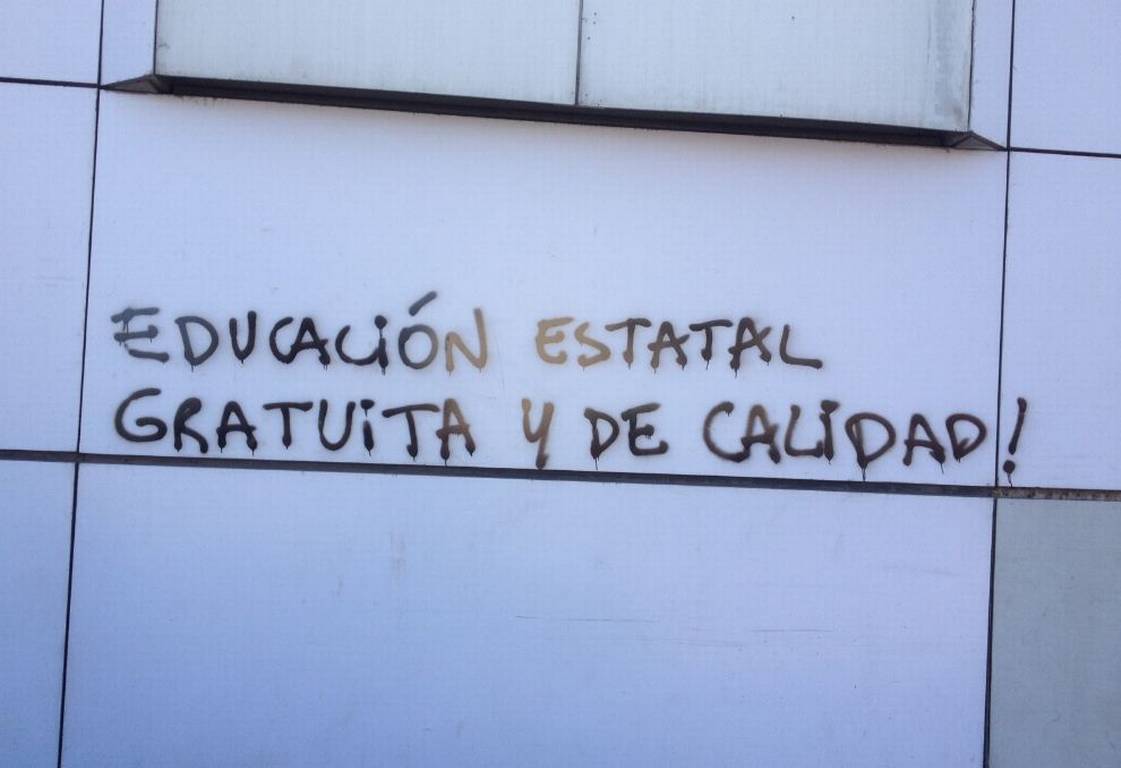 EDUCACIÓN ESTATAL
GRATUITA Y DE CALIDAD!